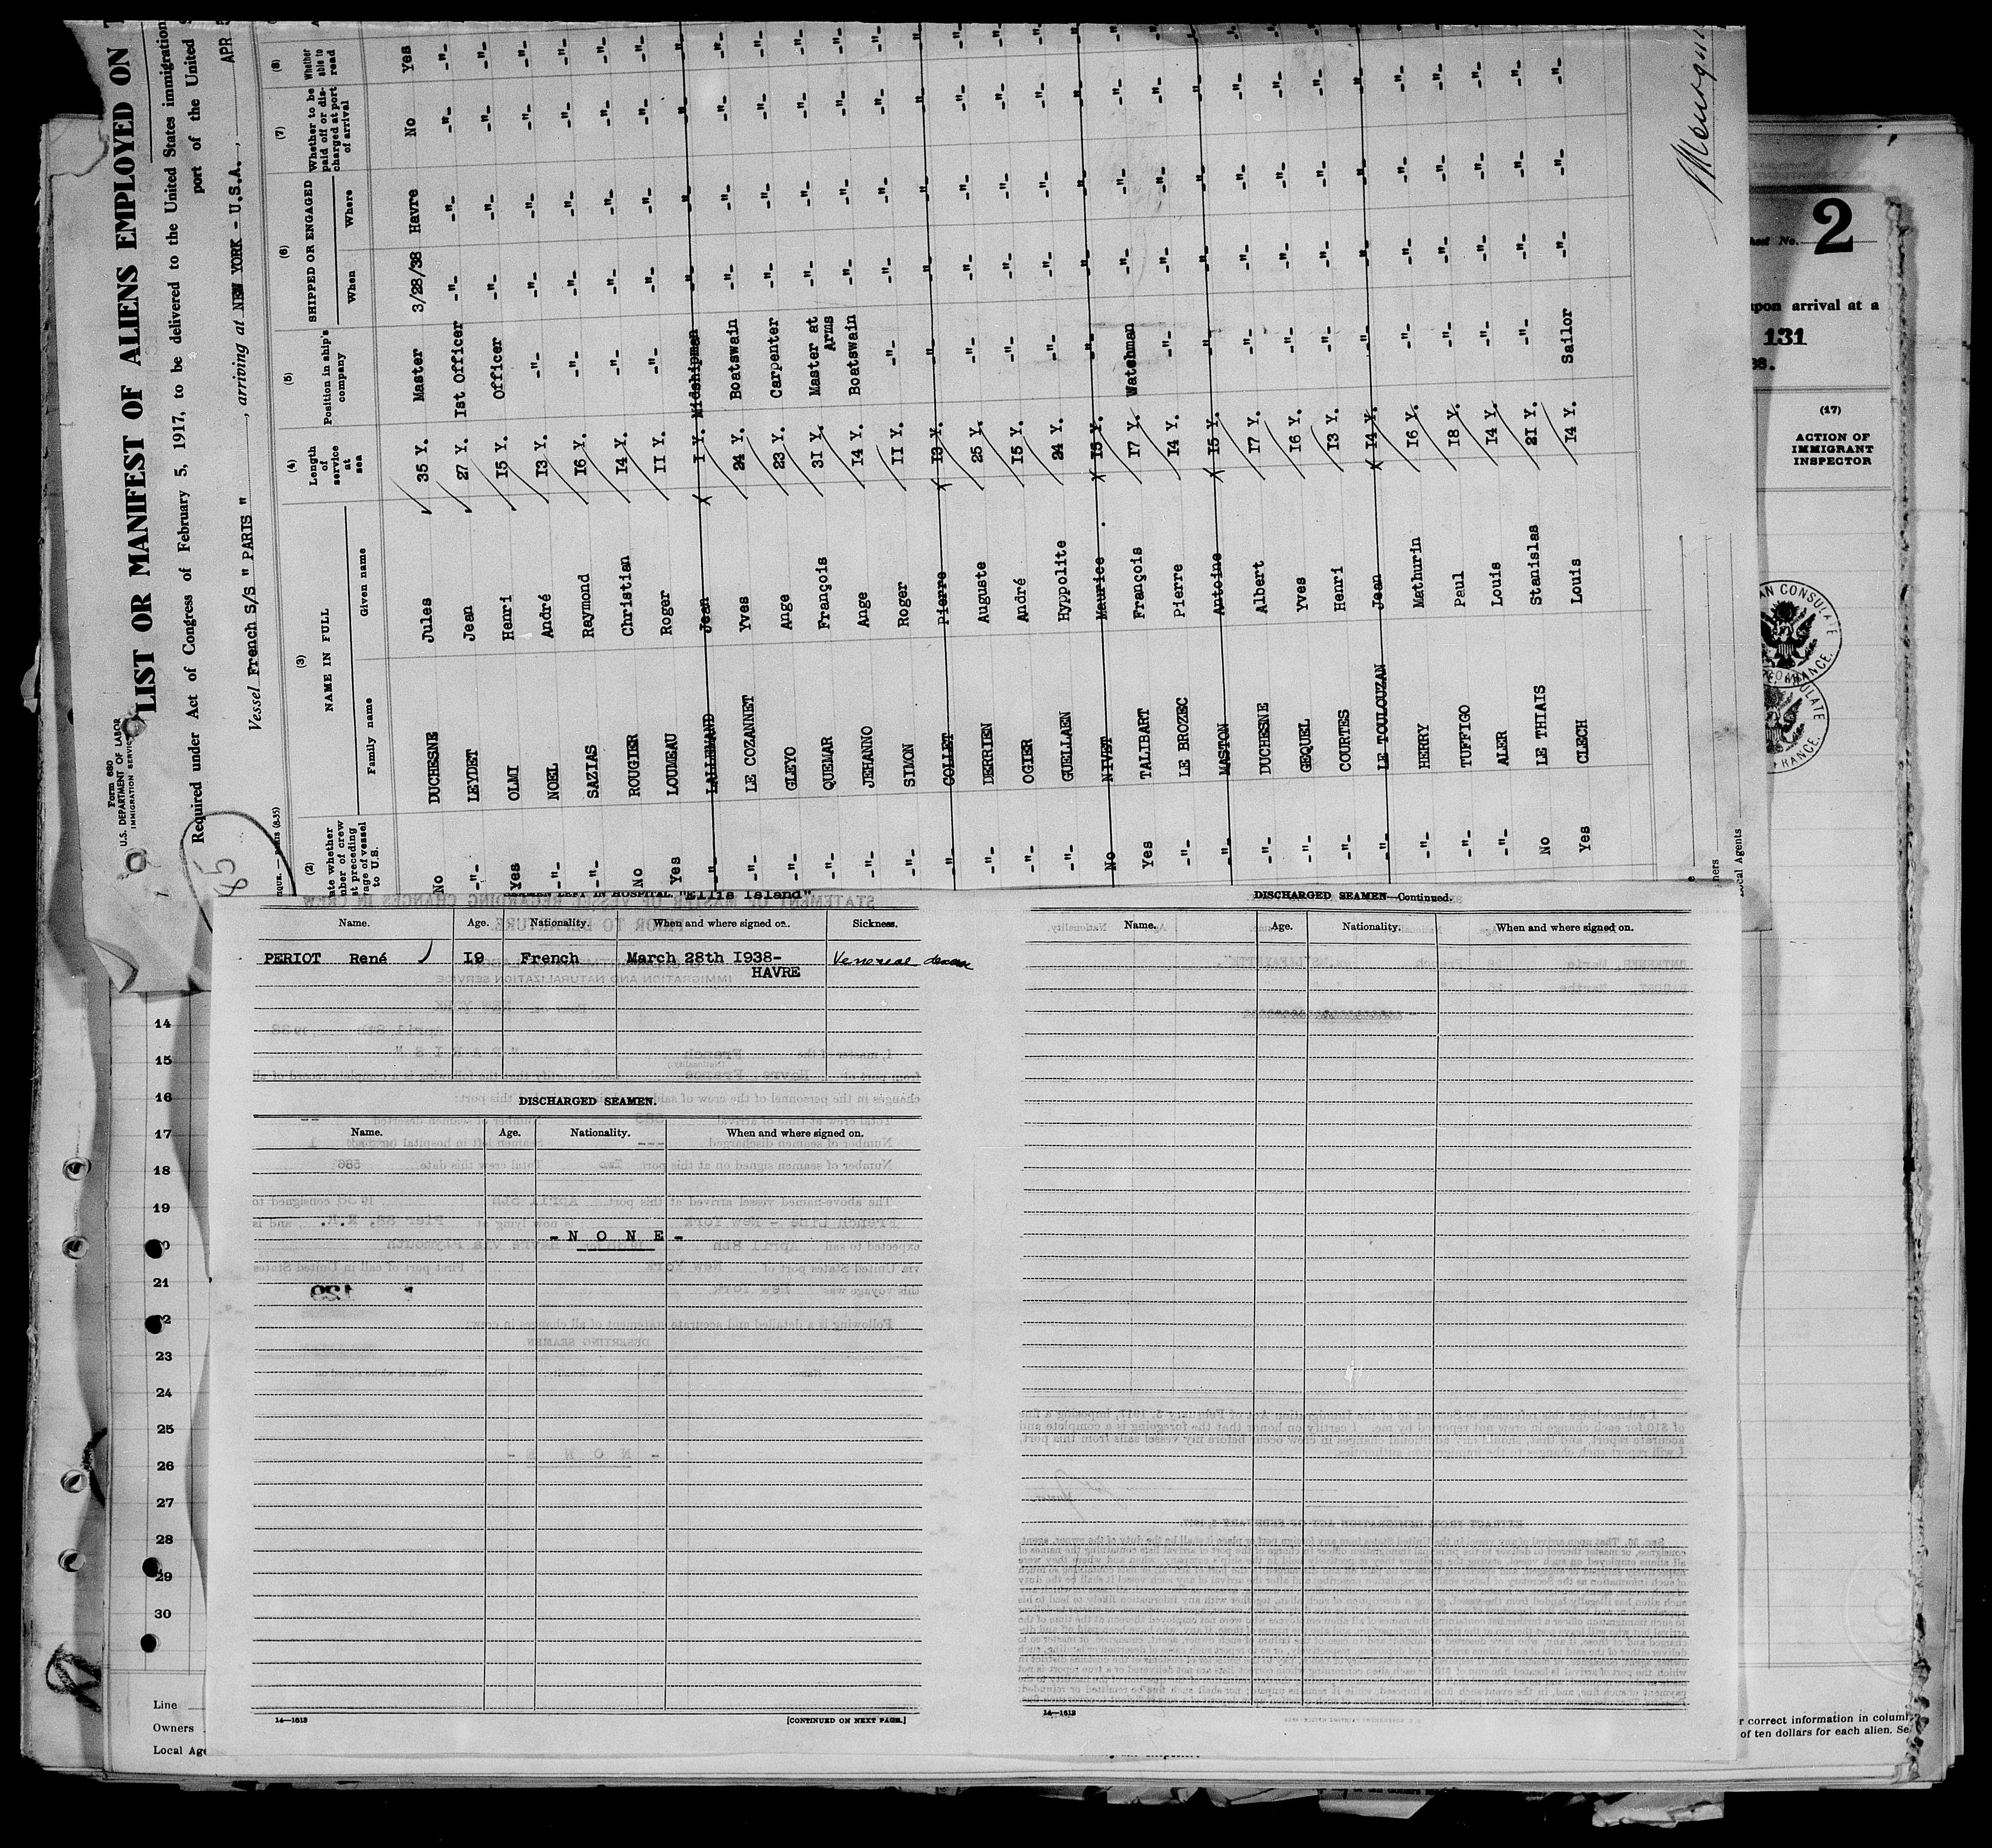 Form 680
U.S. DEPARTMENT OF LABOR
IMMIGRATION SERVICE
LIST OR MANIFEST OF ALIENS EMPLOYED ON
Required under Act of Congress of February 5, 1917, to be delivered to the United States immigration
port of the United
Vessel French S/S " PARIS " , arriving at NEW YORK - U.S.A. , APR
85
(2) (3) (4) (5) (6) (7) (8)
NAME IN FULL
Family name Given name
Length of service at sea
Position in ship's company
SHIPPED OR ENGAGED
When Where
Whether to be paid off or discharged at port of arrival
Whether able to read
No DUCHESNE Jules 35 Y. Master 3/28/38 Havre No Yes
-"- LEYDET Jean 27 Y. Ist Officer -"- -"- -"- -"-
Yes OLMI Henri I5 Y. Officer -"- -"- -"- -"-
-"- NOEL André I3 Y. -"- -"- -"- -"- -"-
-"- SAZIAS Raymond I6 Y. -"- -"- -"- -"- -"-
No ROUGIER Christian I4 Y. -"- -"- -"- -"- -"-
Yes LOUMEAU Roger II Y. -"- -"- -"- -"- -"-
-"- LALLEMAND Jean I Y. Midshipman -"- -"- -"- -"-
-"- LE COZANNET Yves 24 Y. Boatswain -"- -"- -"- -"-
-"- GLEYO Ange 23 Y. Carpenter -"- -"- -"- -"-
-"- QUEMAR François 3I Y. Master at Arms -"- -"- -"- -"-
-"- JEHANNO Ange I4 Y. Boatswain -"- -"- -"- -"-
-"- SIMON Roger II Y. -"- -"- -"- -"- -"-
-"- COLLET Pierre I3 Y. -"- -"- -"- -"- -"-
-"- DERRIEN Auguste 25 Y. -"- -"- -"- -"- -"-
-"- OGIER André I5 Y. -"- -"- -"- -"- -"-
-"- GUELLAEN Hyppolite 24 Y. -"- -"- -"- -"- -"-
No NIVET Maurice . I5 Y. -"- -"- -"- -"- -"-
Yes TALIBART François I7 Y. Watchman -"- -"- -"- -"-
-"- LE BROZEC Pierre I4 Y. -"- -"- -"- -"- -"-
-"- MASTON Antoine I5 Y. -"- -"- -"- -"- -"-
-"- DUCHESNE Albert I7 Y. -"- -"- -"- -"- -"-
-"- GEQUEL Yves I6 Y. -"- -"- -"- -"- -"-
-"- COURTES Henri I3 Y. -"- -"- -"- -"- -"-
-"- LE TOULOUZAN Jean I4 Y. -"- -"- -"- -"- -"-
-"- HERRY Mathurin I6 Y. -"- -"- -"- -"- -"-
-"- TUFFIGO Paul I8 Y. -"- -"- -"- -"- -"-
-"- ALER Louis I4 Y. -"- -"- -"- -"- -"-
No LE THIAIS Stanislas 2I Y. -"- -"- -"- -"- -"-
Yes CLECH Louis I4 Y. Sailor -"- -"- -"- -"-
SEAMEN LEFT IN HOSPITAL "Ellis Island"
Name. Age. Nationality. When and where signed on. Sickness.
PERIOT René I9 French March 28th I938- Venereal
HAVRE
DISCHARGED SEAMEN.
Name. Age. Nationality. When and where signed on.
- N O N E -
14—1613
[CONTINUED ON NEXT PAGE.]
DISCHARGED SEAMEN—Continued.
Name. Age. Nationality. When and where signed on.
14—1613
No. 2
upon arrival at a
131
(17)
ACTION OF
IMMIGRANT
INSPECTOR
14
15
16
17
18
19
21
23
24
25
26
27
28
29
30
Line
Owners
Local Age
r correct information in column
of ten dollars for each alien. Se